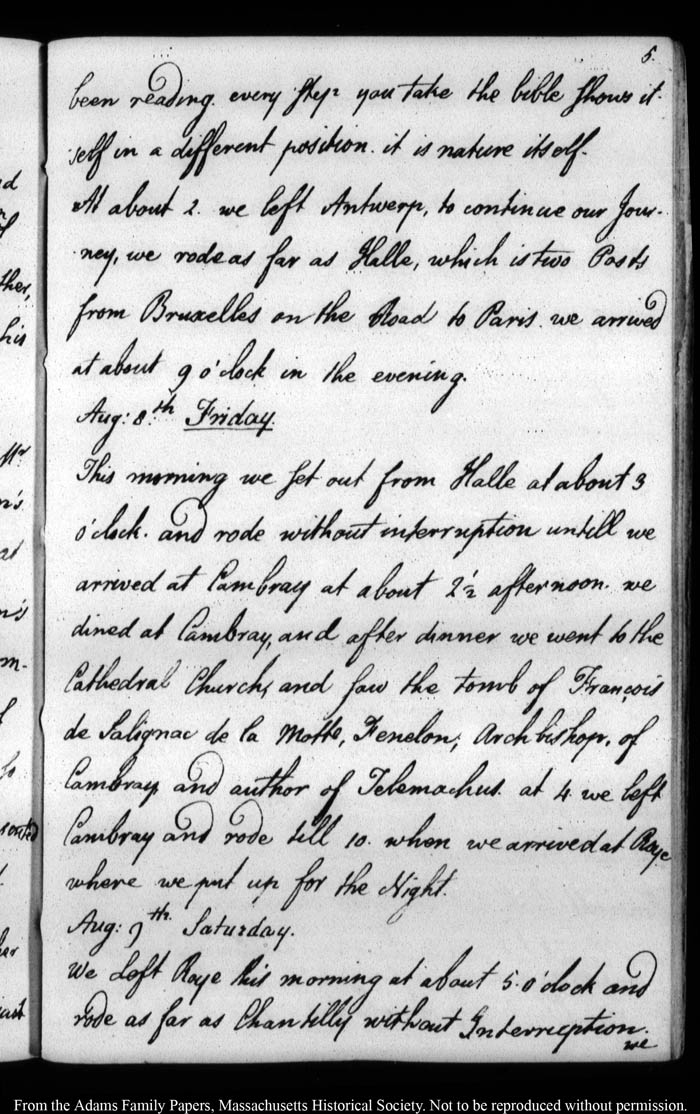 5.
been reading. every step you take the bible shows it-
self in a different position. it is nature itself.
At about 2. we left Antwerp, to continue our Jour-
ney, we rode as far as Halle, which is two Posts
from Bruxelles on the Road to Paris. we arrived
at about 9 o'clock in the evening.
Aug: 8.th Friday.
This morning we set out from Halle at about 3
o'clock. and rode without interruption untill we
arrived at Cambray at about 2 1/2 afternoon. we
dined at Cambray, and after dinner we went to the
Cathedral Church, and saw the tomb of François
de Salignac de la Motte, Fenelon, Archbishop, of
Cambray and author of Telemachus. at 4. we left
Cambray and rode till 10. when we arrived at Roye
where we put up for the Night.
Aug: 9th. Saturday.
We Left Roye this morning at about 5. o'clock and
rode as far as Chantilly without Interruption.
we
From the Adams Family Papers, Massachusetts Historical Society. Not to be reproduced without permission